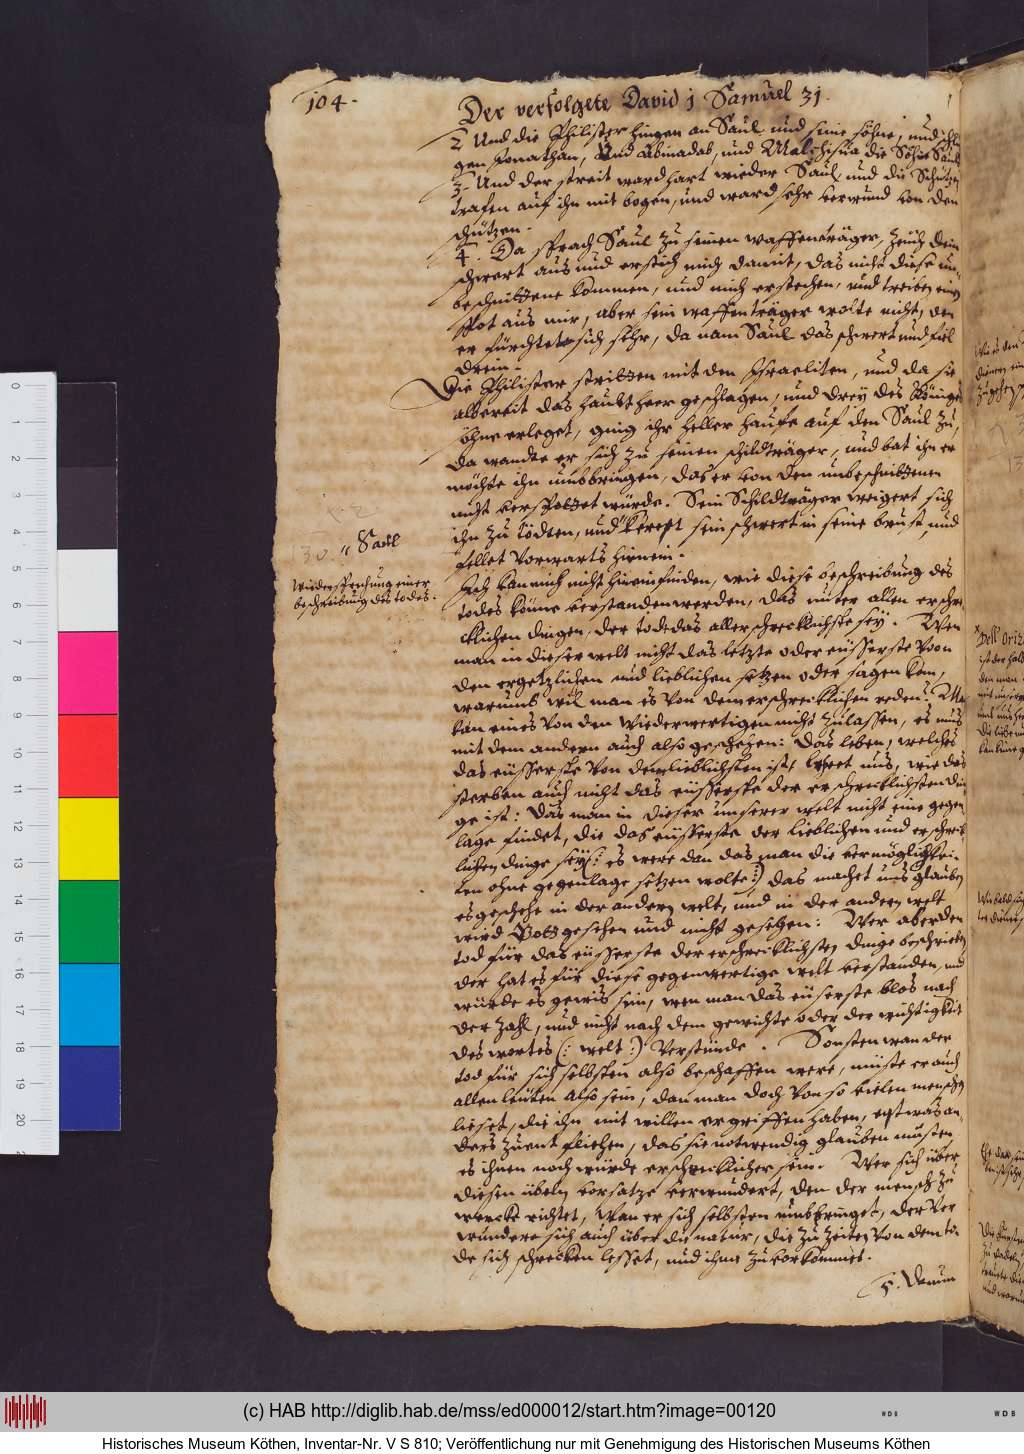 104.
Der verfolgete David j Samuel 31.
2 Und die Philister hingen an Saul und seine söhne, und schlu
gen Jonathan, Und Abinadab, und Malchisua die Söhne Sauls
3. Und der streit ward hart wieder Saul und die Schützen
trafen auf ihn mit bogen, und ward sehr verwund von den
schützen.
4. Da sprach Saul zu seinen waffenträger, zeuch dein
schwert aus und erstich mich damit, das nicht diese un-
beschnittene kommen, und mich erstechen, und treiben einen
spot aus mir, aber sein waffenträger wolte nicht, den
er fürchtete sich sehr, da nam Saul das schwert und fiel
drein.
Die Philister stritten mit den Israeliten, und da sie
albereit das haubt heer geschlagen, und drey des Königes
söhne erleget, ging ihr heller haufe auf den Saul zu,
da wandte er sich zu seinen schildträger, und bat ihn er
möchte ihn umbbringen, das er von den unbeschnittenen
nicht verspottet würde. Sein Schildträger weigert sich
ihn zu tödten, und sein schwert in seine brust, und
fellet vorwarts hinnein.
" Saul
Wiedersprechung einer
beschreibung des todes.
Ich kan mich nicht hinein finden, wie diese beschreibung des
todes könne verstanden werden, das unter allen erschre-
cklichen dingen, der tode das allerschrecklichste sey. Wen
man in dieser welt nicht das letzte oder eüsserste von
den ergetzlichen und lieblichen setzen oder sagen kan,
warumb wil man es von dem erschrecklichen reden? Man
kan eines von den wiederwertigen nicht zulassen, es mus
mit dem andern auch also geschehen: Das leben, welches
das eüsserste von dem lieblichsten ist, lehret uns, wie das
sterben auch nicht das eüsserste der erschrecklichsten din
ge ist: Das man in dieser unserer welt nicht eine gegen
lage findet, die das eüsserste der lieblichen und erschrek
lichen dinge sey (: es were dan das man die vermöglichkei-
ten ohne gegenlage setzen wolte :) das machet uns glauben
es geschehe in der andern welt, und in der andern welt
wird Gott gesehen und nicht gesehen: Wer aber den
tod für das eüsserste der erschrecklichsten dinge beschrieben
der hat es für diese gegenwertige welt verstanden, und
würde es gewis sein, wen man das eüserste blos nach
der zahl, und nicht nach dem gewichte oder der wichtigkeit
des wortes (: welt :) verstünde. Sonsten wan der
tod für sich selbsten also beschaffen were, müste er auch
allen leuten also sein, dan man doch von so vielen menschen
lieset, die ihn mit willen ergriffen haben, etwas an-
ders zu entfliehen, das sie notwendig glauben musten
es ihnen noch würde erschrecklicher sein. Wer sich über
diesen übeln vorsatze verwundert, den der mensch zu
wercke richtet, wan er sich selbsten umbbringet, der ver
wundere sich auch über die natur, die zu zeiten von dem to-
de sich schrecken lesset, und ihme zuvorkommet.
5. Darum
(c) HAB http://diglib.hab.de/mss/ed000012/start.htm?image=00120
Historisches Museum Köthen, Inventar-Nr. V S 810; Veröffentlichung nur mit Genehmigung des Historischen Museums Köthen